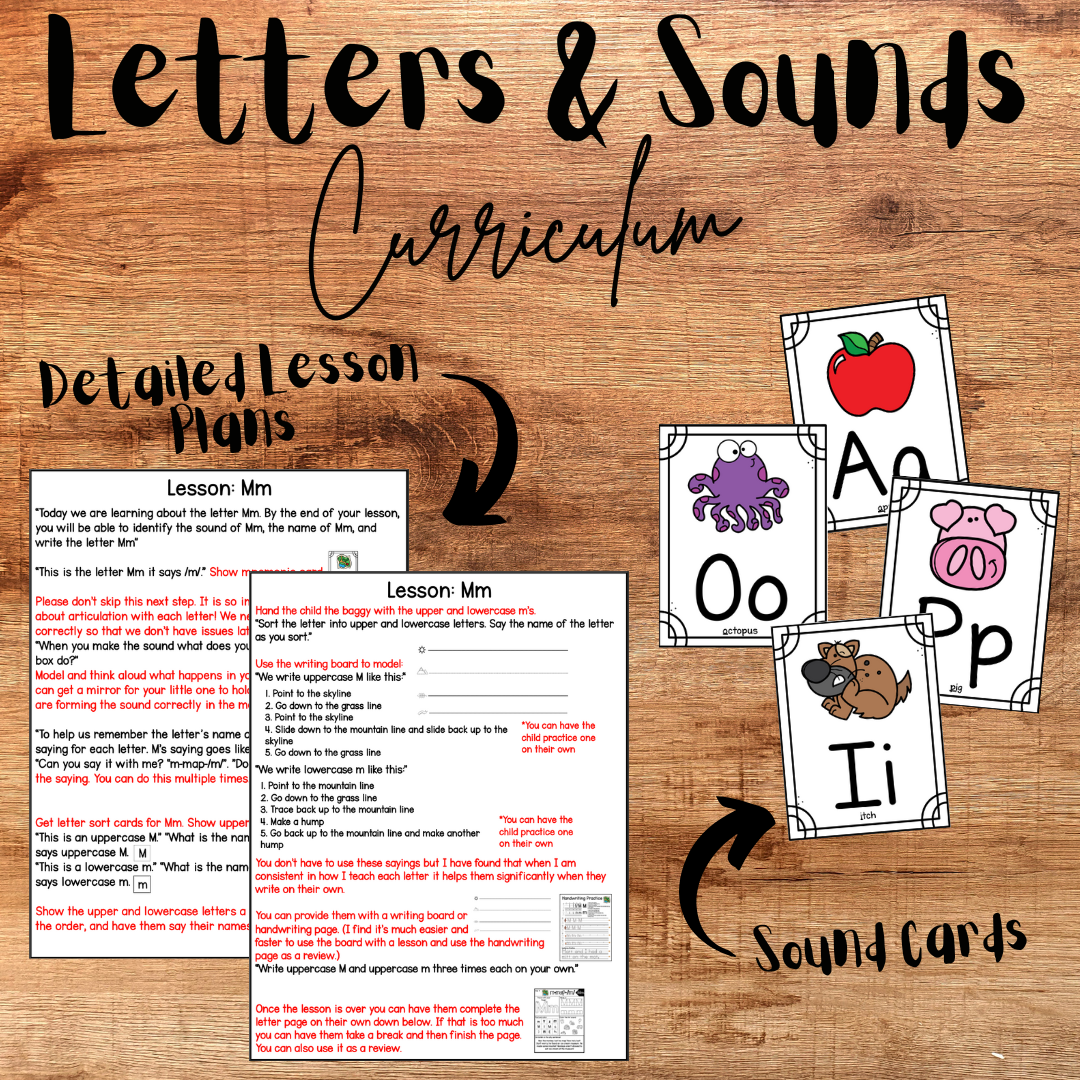 Letters & Sounds
Curriculum
Detailed Lesson
Plans
Lesson: Mm
"Today we are learning about the letter Mm. By the end of your lesson,
you will be able to identify the sound of Mm, the name of Mm, and
write the letter Mm"
"This is the letter Mm it says /m/." Show mnemonic card
Please don't skip this next step. It is so
about articulation with each letter! We
correctly so that we don't have issues
"When you make the sound what does
box do?"
Model and think aloud what happens in
can get a mirror for your little one to
are forming the sound correctly in the
"To help us remember the letter's name
saying for each letter. M's saying goes
"Can you say it with me? "m-map-/m/".
the saying. You can do this multiple times.
Get letter sort cards for Mm. Show
"This is an uppercase M." "What is the
says uppercase M. M
"This is a lowercase m." "What is the
says lowercase m. m
Show the upper and lowercase letters
the order, and have them say their
Lesson: Mm
Hand the child the baggy with the upper and lowercase m's.
"Sort the letter into upper and lowercase letters. Say the name of the letter
as you sort."
Use the writing board to model:
"We write uppercase M like this:"
1. Point to the skyline
2. Go down to the grass line
3. Point to the skyline
4. Slide down to the mountain line and slide back up to the
skyline
5. Go down to the grass line
*You can have the
child practice one
on their own
"We write lowercase m like this:"
1. Point to the mountain line
2. Go down to the grass line
3. Trace back up to the mountain line
4. Make a hump
5. Go back up to the mountain line and make another
hump
*You can have the
child practice one
on their own
You don't have to use these sayings but I have found that when I am
consistent in how I teach each letter it helps them significantly when they
write on their own.
You can provide them with a writing board or
handwriting page. (I find it's much easier and
faster to use the board with a lesson and use the handwriting
page as a review.)
"Write uppercase M and uppercase m three times each on your own."
Handwriting Practice
Once the lesson is over you can have them complete the
letter page on their own down below. If that is too much
you can have them take a break and then finish the page.
You can also use it as a review.
Aa
Oo
octopus
Pp
pig
Ii
itch
Sound Cards